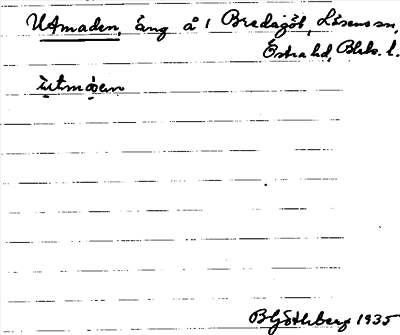 Utmaden, Äng å 1 Bredagöl, Lösens sn,
Östra hd, Blek. l.
ùtmǫem
B Göthberg 1935